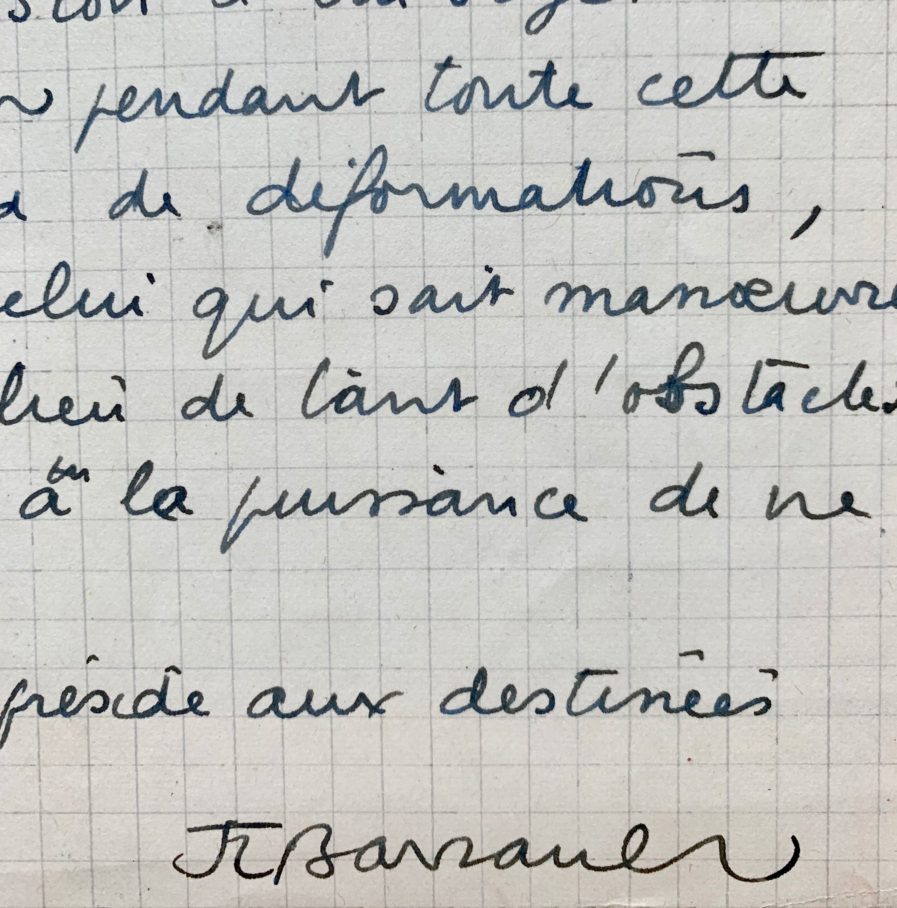 pendant toute cette
de déformations,
elui qui sait manœuvre
lieu de tant d'obstacles
a la puissance de ne
préside aux destinées
JLBarrault